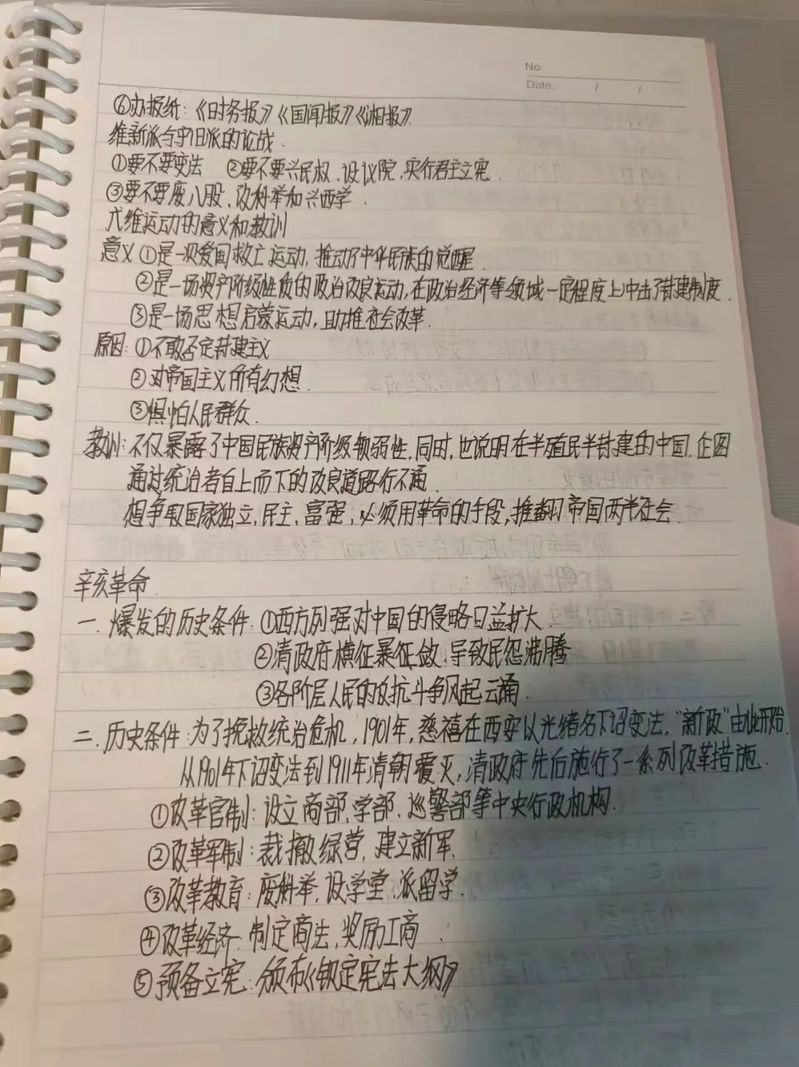 No.
Date. / /
⑥办报纸：《时务报》《国闻报》《湘报》
维新派与守旧派的论战
①要不要变法 ②要不要兴民权、设议院，实行君主立宪
③要不要废八股、改科举和兴西学
戊维运动的意义和教训
意义①是一次爱国救亡运动，推动了中华民族的觉醒
②是一场资产阶级性质的政治改良运动，在政治经济等领域一定程度上冲击了封建制度.
③是一场思想启蒙运动，助推社会改革.
原因：①不敢否定封建主义
②对帝国主义所有幻想.
③惧怕人民群众.
教训：不仅暴露了中国民族资产阶级软弱性，同时，也说明在半殖民半封建的中国，企图
通过统治者自上而下的改良道路行不通
想争取国家独立，民主，富强，必须用革命的手段，推翻帝国两半社会.
辛亥革命
一.爆发的历史条件：①西方列强对中国的侵略日益扩大
②清政府横征暴征敛，导致民怨沸腾
③各阶层人民的反抗斗争风起云涌
二.历史条件：为了挽救统治危机，1901年，慈禧在西安以光绪名下诏变法，"新政"由此开始.
从1901年下诏变法到1911年清朝覆灭，清政府先后施行了一系列改革措施.
①改革官制：设立商部，学部、巡警部等中央行政机构.
②改革军制：裁撤绿营，建立新军.
③改革教育：废科举，设学堂，派留学.
④改革经济：制定商法，奖励工商
⑤预备立宪：颁布《钦定宪法大纲》